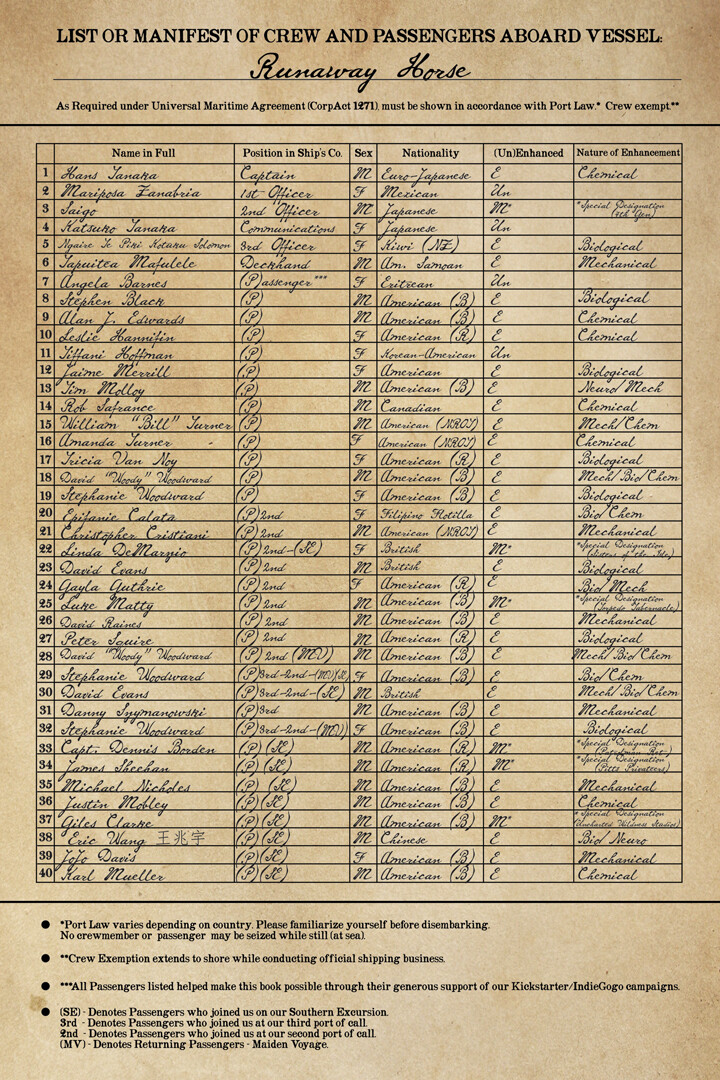 LIST OR MANIFEST OF CREW AND PASSENGERS ABOARD VESSEL:
Runaway Horse
As Required under Universal Maritime Agreement (CorpAct 1271), must be shown in accordance with Port Law.* Crew exempt.**
Name in Full Position in Ship's Co. Sex Nationality (Un)Enhanced Nature of Enhancement
1 Hans Tanaka Captain M Euro-Japanese E Chemical
2 Mariposa Zanabria 1st Officer F Mexican Un
3 Saigo 2nd Officer M Japanese M* *Special Designation (9th Gen)
4 Katsuko Tanaka Communications F Japanese Un
5 Ngaire Te Piki Kotuku Solomon 3rd Officer F Kiwi (NZ) E Biological
6 Tapuitea Mafulele Deckhand M Am. Samoan E Mechanical
7 Angela Barnes (P)assenger*** F Eritrean Un
8 Stephen Black (P) M American (B) E Biological
9 Alan J. Edwards (P) M American (B) E Chemical
10 Leslie Hannifin (P) F American (R) E Chemical
11 Tiffani Hoffman (P) F Korean-American Un
12 Jaime Merrill (P) F American E Biological
13 Tim Molloy (P) M American (B) E Neuro/Mech
14 Rob Safrance (P) M Canadian E Chemical
15 William "Bill" Turner (P) M American (NROJ) E Mech/Chem
16 Amanda Turner (P) F American (NROJ) E Chemical
17 Tricia Van Noy (P) F American (R) E Biological
18 David "Woody" Woodward (P) M American (B) E Mech/Bio/Chem
19 Stephanie Woodward (P) F American (B) E Biological
20 Epifanie Calata (P) 2nd F Filipino Flotilla E Bio/Chem
21 Christopher Cristiani (P) 2nd M American (NROJ) E Mechanical
22 Linda DeMarzio (P) 2nd-(SE) F British M* *Special Designation (Sisters of the Isle)
23 David Evans (P) 2nd M British E Biological
24 Gayla Guthrie (P) 2nd F American (R) E Bio/Mech
25 Luke Matty (P) 2nd M American (B) M* *Special Designation (Torpedo Tabernacle)
26 David Raines (P) 2nd M American (B) E Mechanical
27 Peter Squire (P) 2nd M American (R) E Biological
28 David "Woody" Woodward (P) 2nd (MV) M American (B) E Mech/Bio/Chem
29 Stephanie Woodward (P)3rd-2nd-(MV)(SE) F American (B) E Bio/Chem
30 David Evans (P)3rd-2nd-(SE) M British E Mech/Bio/Chem
31 Danny Szymanowski (P)3rd M American (B) E Mechanical
32 Stephanie Woodward (P)3rd-2nd-(MV) F American (B) E Biological
33 Capt. Dennis Borden (P)(SE) M American (R) M* *Special Designation
34 James Sheehan (P)(SE) M American (B) M* *Special Designation (Pitts Privateers)
35 Michael Nicholes (P) (SE) M American (B) E Mechanical
36 Justin Mobley (P)(SE) M American (B) E Chemical
37 Giles Clarke (P)(SE) M American (B) M* *Special Designation
38 Eric Wang 王兆宇 (P)(SE) M Chinese E Bio/Neuro
39 JoJo Davis (P)(SE) F American (B) E Mechanical
40 Karl Mueller (P)(SE) M American (B) E Chemical
● *Port Law varies depending on country. Please familiarize yourself before disembarking.
No crewmember or passenger may be seized while still (at sea).
● **Crew Exemption extends to shore while conducting official shipping business.
● ***All Passengers listed helped make this book possible through their generous support of our Kickstarter/IndieGogo campaigns.
● (SE) - Denotes Passengers who joined us on our Southern Excursion.
3rd - Denotes Passengers who joined us at our third port of call.
2nd - Denotes Passengers who joined us at our second port of call.
(MV) - Denotes Returning Passengers - Maiden Voyage.